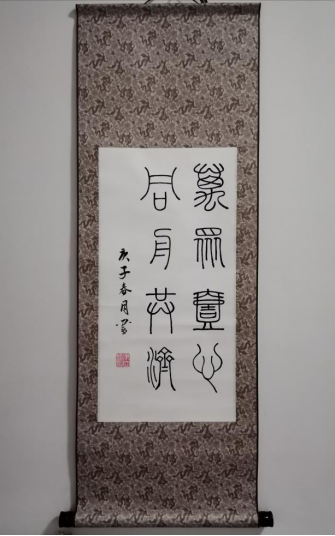 萬眾壹心
同舟共濟
庚子春月